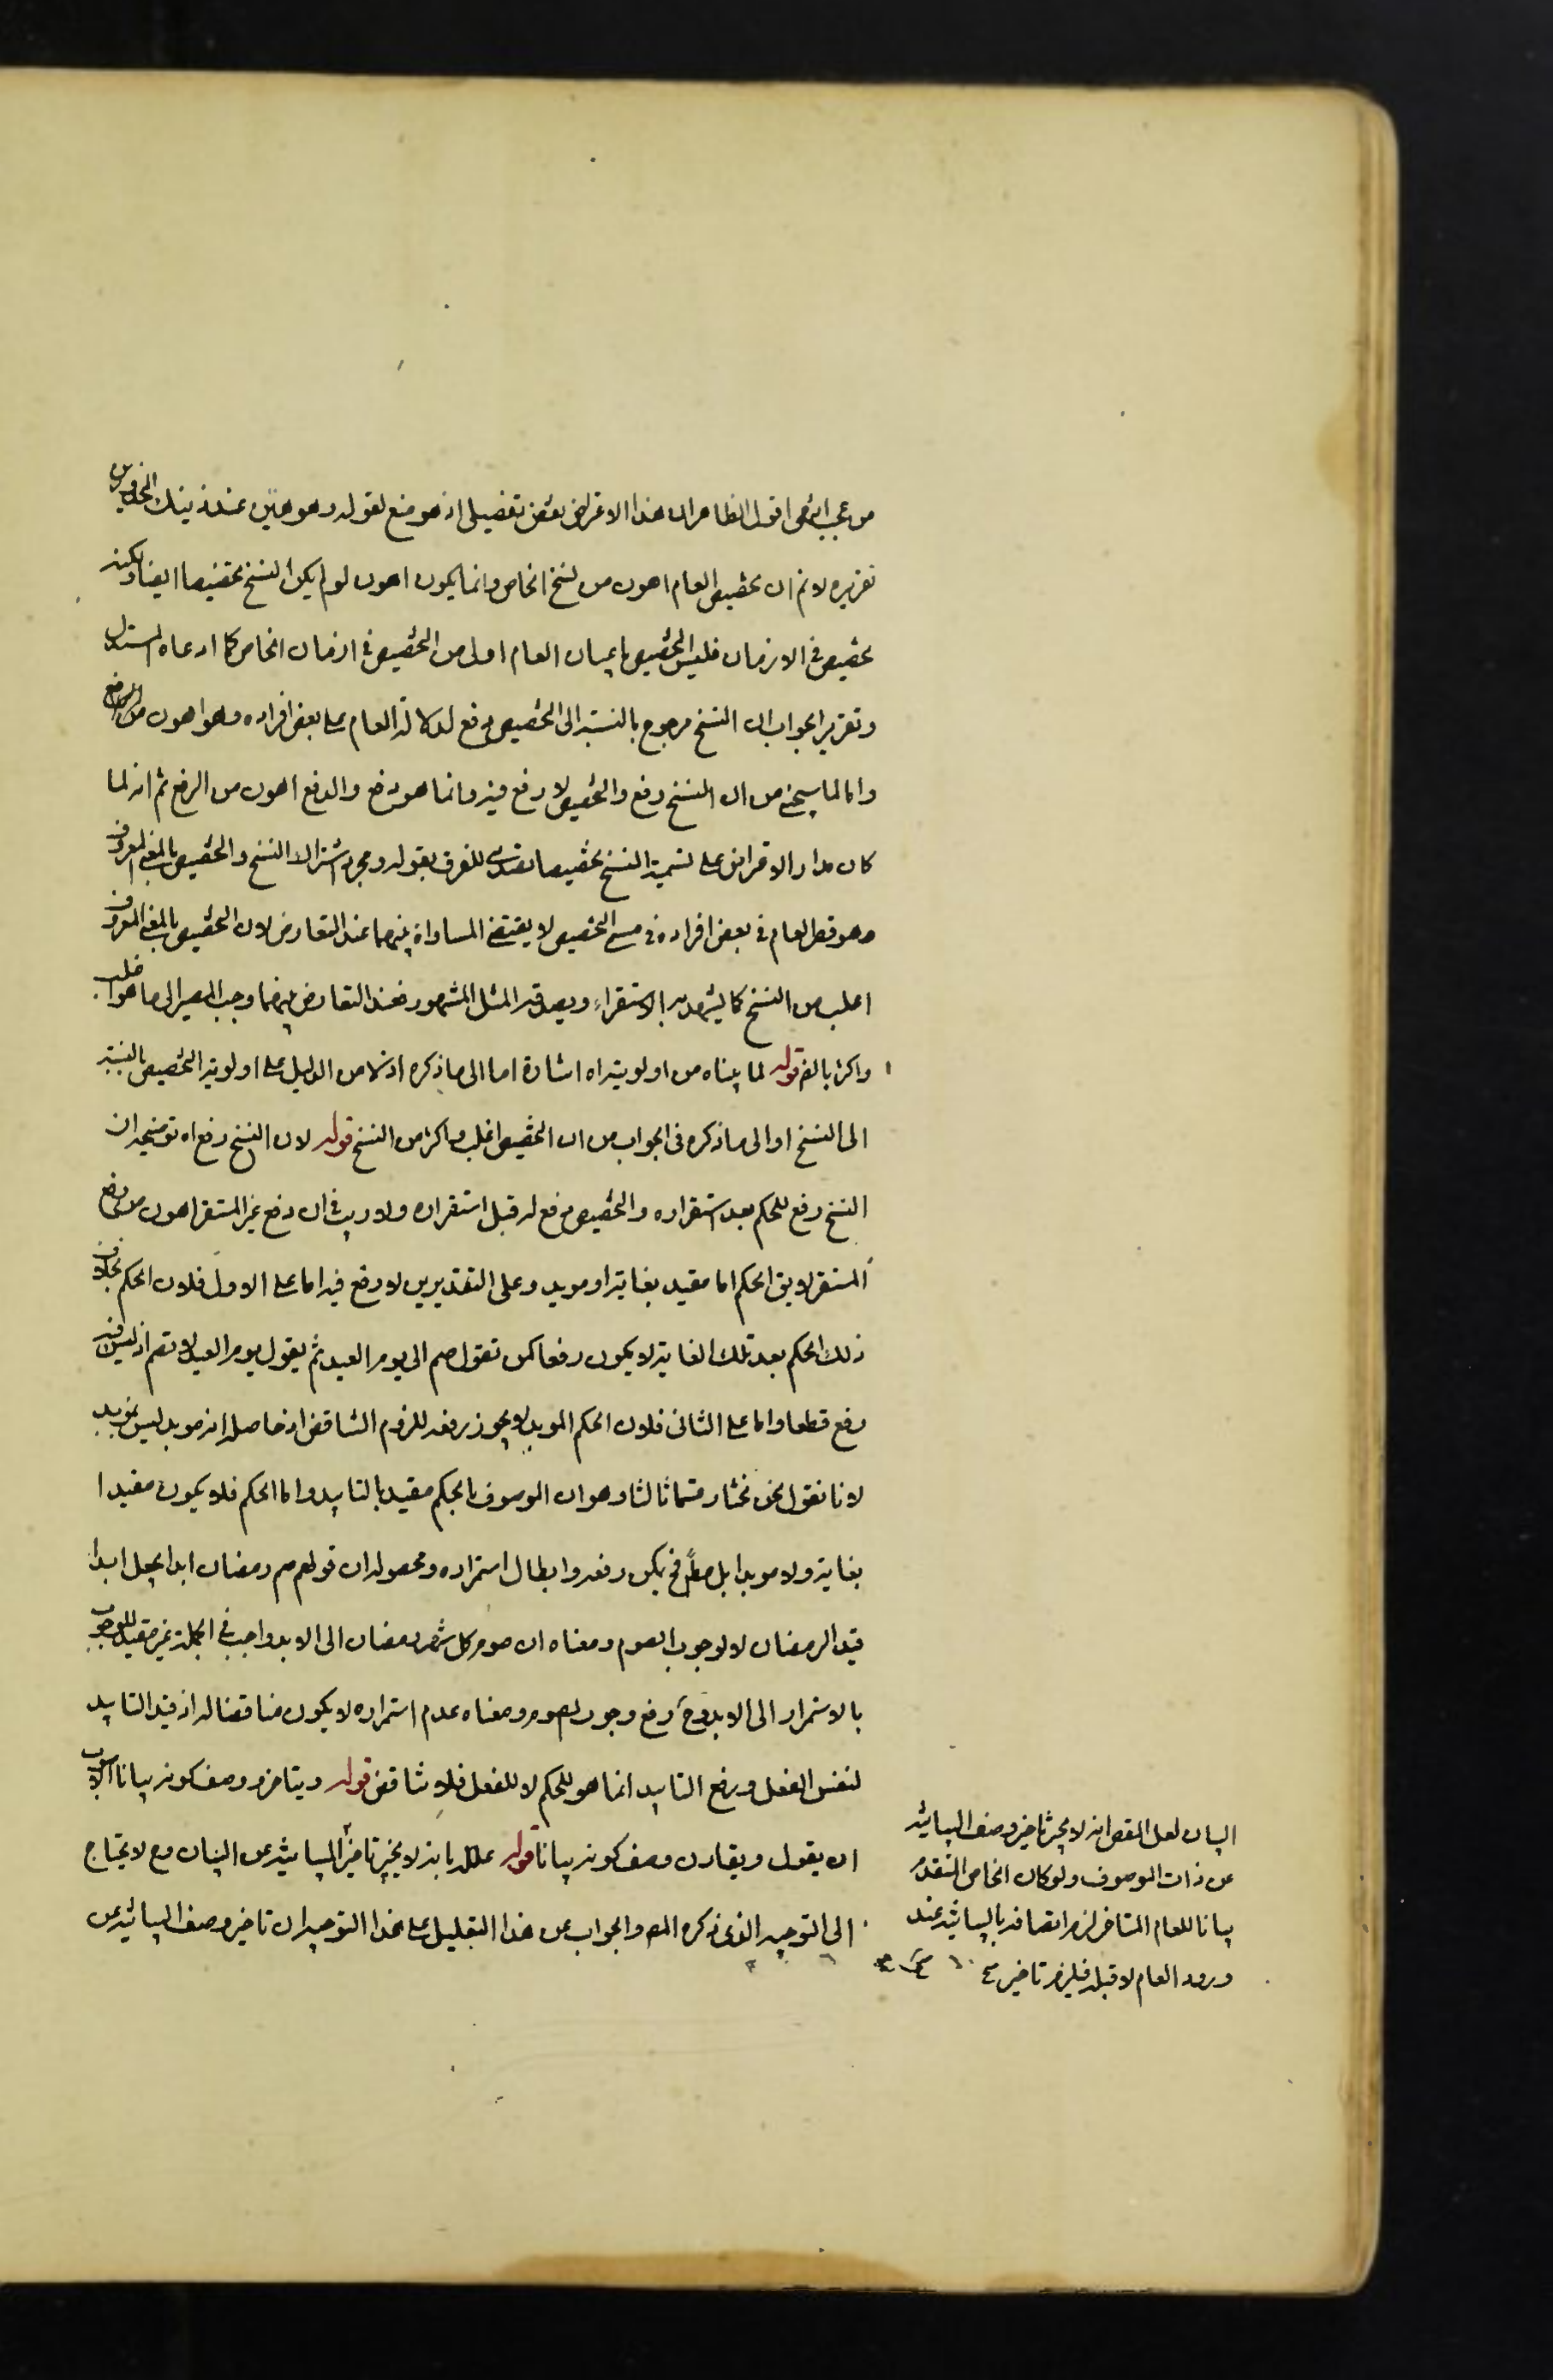 من عجب انتهى اقول الظاهر ان هذا الاعتراض نقض تفصيلى اذ هو منع لقوله وهو هين عند ذينك
تقريره لا نم ان تخصيص العام اهون من نسخ الخاص وانما يكون اهون لو لم يكن النسخ تخصيصا ايضا ولكنه
تخصيص فى الازمان فليس التخصيص باعيان العام اولى من التخصيص فى ازمان الخاص كما ادعاه المستدل
وتقرير الجواب ان النسخ مرجوح بالنسبة الى التخصيص رفع لدلالة العام على بعض افراده وهو اهون من
واما لما سيجئ من ان النسخ رفع والتخصيص لا رفع فيه وانما هو دفع والدفع اهون من الرفع ثم انه لما
كان مدار الاعتراض على تسمية النسخ تخصيصا تصدى للفرق بقوله ومجرد اشتراك النسخ والتخصيص بالمعنى المعروف
وهو قصر العام فى بعض افراده فى مسمى التخصيص لا يقتضى المساواة بينهما عند التعارض لان التخصيص بالمعنى المعروف
اغلب من النسخ كما يشهد به الاستقراء ويصدقه المثل المشهور فعند التعارض بينهما وجب المصير الى ما هو اغلب
واكثر بالفه قوله لما بيناه من اولويته اه اشارة اما الى ما ذكره اولا من الدليل على اولوية التخصيص بالنسبة
الى النسخ او الى ما ذكره فى الجواب من ان التخصيص اغلب واكثر من النسخ قوله لان النسخ رفع اه توضيحه ان
النسخ رفع للحكم بعد استقراره والتخصيص رفع له قبل استقراره ولا ريب فى ان رفع غير المستقر اهون من رفع
المستقر لا يق الحكم اما مقيد بغاية او موبد وعلى التقديرين لا رفع فيه اما على الاول فلان الحكم بخلاف
ذلك الحكم بعد تلك الغاية لا يكون رفعا كمن تقول صم الى يوم العيد ثم يقول يوم العيد لا تصم اذ ليس فيه
رفع قطعا واما على الثانى فلان الحكم الموبد لا يجوز رفعه للزوم التناقض اذ حاصله انه موبد ليس بموبد
لانا نقول نحن نختار قسما ثالثا وهو ان الموصوف بالحكم مقيد بالتابيد واما الحكم فلا يكون مقيدا
بغاية ولا موبدا بل مطلقا فح يمكن رفعه وابطال استمراره ومحصوله ان قولهم صم رمضان ابدا يجعل ابدا
قيدا لرمضان لا لوجوب الصوم ومعناه ان صوم كل شهر رمضان الى الابد واجب فى الجملة غير مقيد للوجوب
بالاستمرار الى الابد وح رفع وجوب الصوم ومعناه عدم استمراره لا يكون مناقضا له اذ قيد التابيد
لنفس الفعل ورفع التابيد انما هو للحكم لا للفعل فلا تناقض قوله ويتاخر وصف كونه بيانا الاصوب
ان يقول ويقارن وصف كونه بيانا قوله علله بانه لا يجيز تاخير البيانية عن البيان مع لا يحتاج
الى التوجيه الذى ذكره المصـ والجواب عن هذا التعليل على هذا التوجيه ان تاخير وصف البيانية عن
البيان لعل المقصـ انه لا يجيز تاخير وصف البيانية
عن ذات الموصوف ولو كان الخاص المتقدم
بيانا للعام المتاخر لزم اتصافه بالبيانية عند
ورود العام لا قبله فيلزم تاخير